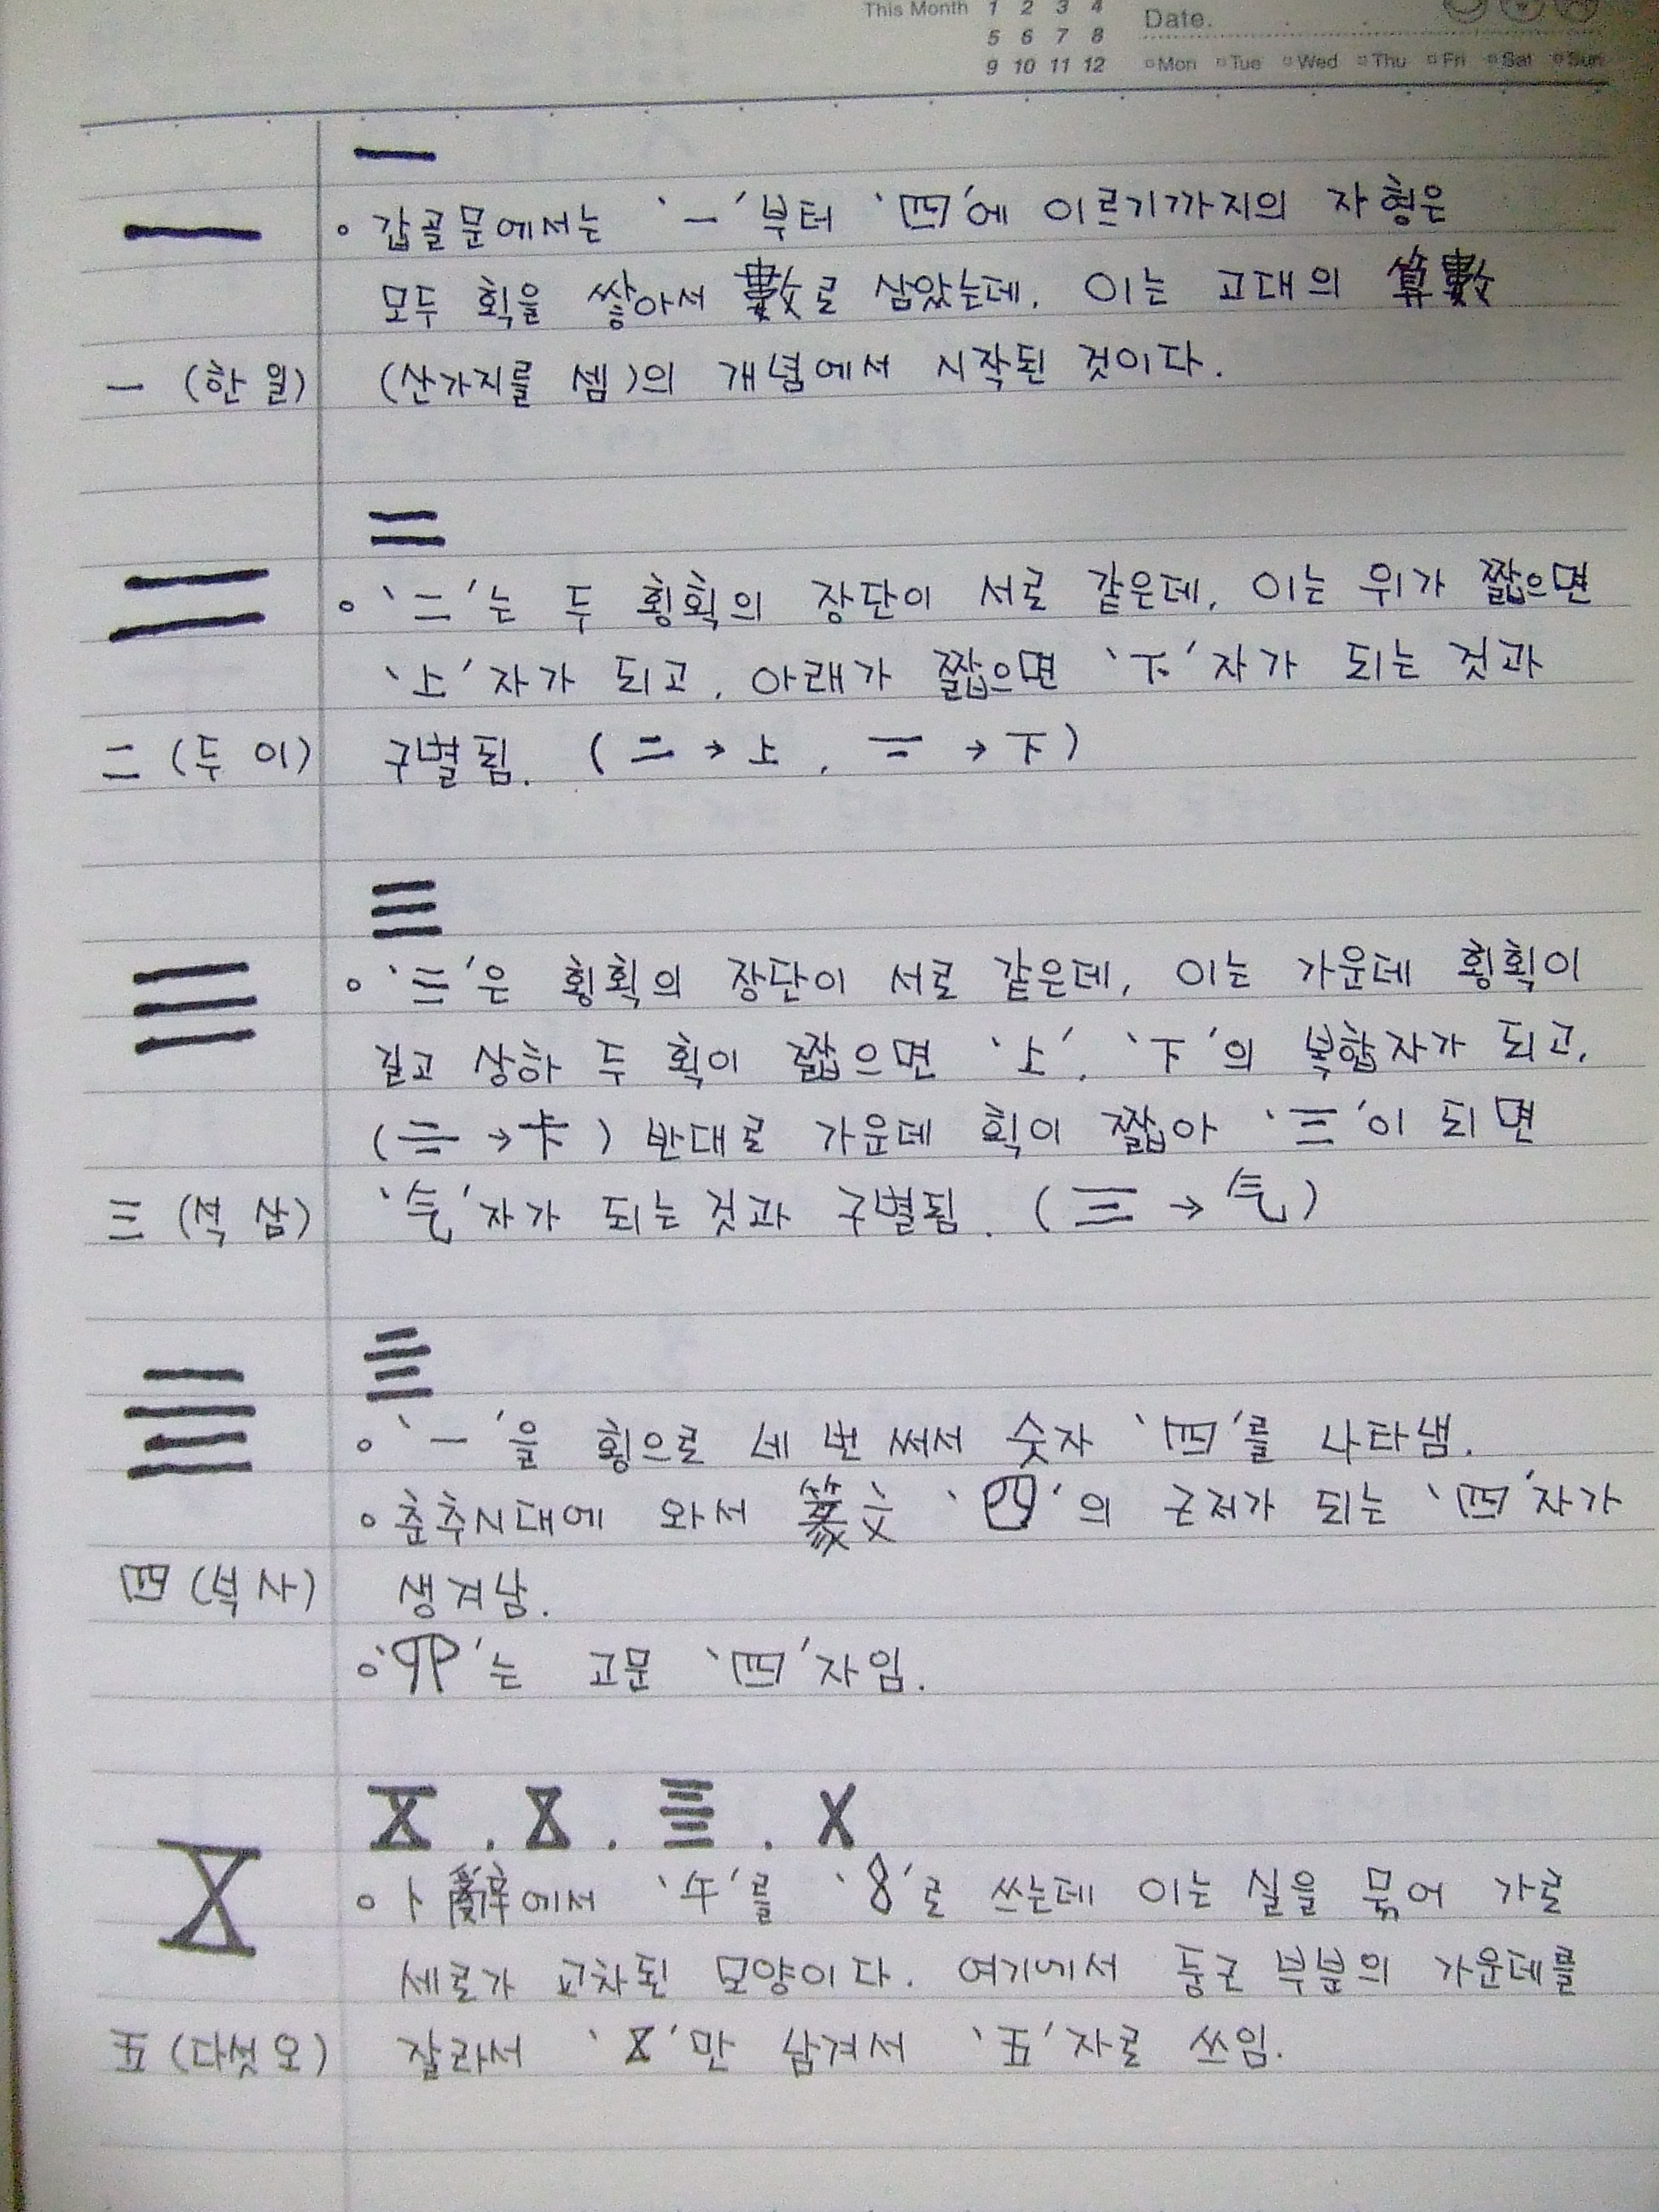 This Month 1 2 3 4
5 6 7 8
9 10 11 12
Date.
Mon Tue Wed Thu Fri Sat Sun
一
一 (한 일)
一
◦ 갑골문에서는 '一'부터 '四'에 이르기까지의 자형은
모두 획을 쌓아서 數로 삼았는데, 이는 고대의 算數
(산가지를 셈)의 개념에서 시작된 것이다.
二
二 (두 이)
二
◦ '二'는 두 횡획의 장단이 서로 같은데, 이는 위가 짧으면
'上'자가 되고, 아래가 짧으면 '下'자가 되는 것과
구별됨. (二 → 上, 二 → 下)
三
三 (석 삼)
三
◦ '三'은 횡획의 장단이 서로 같은데, 이는 가운데 횡획이
길고 상하 두 획이 짧으면 '上', '下'의 복합자가 되고,
(三 → 卡) 반대로 가운데 획이 짧아 '三'이 되면
'气'자가 되는 것과 구별됨. (三 → 气)
亖
四 (넉 사)
亖
◦ '一'을 횡으로 네 번 써서 숫자 '四'를 나타냄.
◦ 춘추시대에 와서 篆文 '四'의 근저가 되는 '四'자가
생겨남.
는 고문 '四'자임.
五 (다섯 오)
◦ 卜辭에서 '午'를 '8'로 쓰는데 이는 실을 묶어 가로
세로가 교차된 모양이다. 여기에서 둥근 부분의 가운데를
잘라서 '㐅'만 남겨서 '五'자로 쓰임.